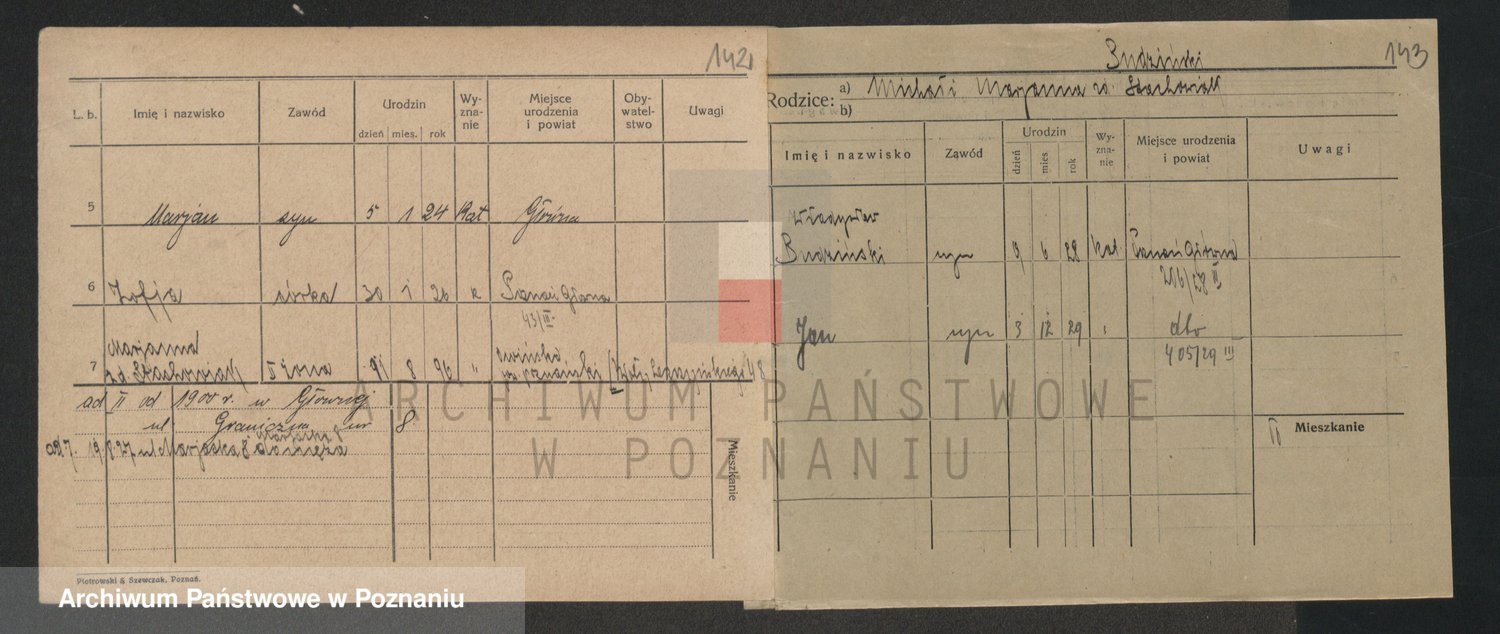 142
L. b.
Imię i nazwisko
Zawód
Urodzin
dzień mies. rok
Wy-
zna-
nie
Miejsce
urodzenia
i powiat
Oby-
watel-
stwo
Uwagi
5 Marjan syn 5 1 24 Kat Główna
6 Zofja córka 30 1 26 k Poznań Główna
43/III
Marjanna
7 zd. Stachowiak II żona 8 96 "
ad II od 1900 r. w Głównej
ul Graniczna nr 8
ad 7. 19 8 27 ul Marjacka 8
Mieszkanie
Piotrowski & Szewczak, Poznań.
143
Budziński
Rodzice: a) Michał i Marjanna zd. Stachowiak
b)
Imię i nazwisko
Zawód
Urodzin
dzień
mies
rok
Wy-
zna-
nie
Miejsce urodzenia
i powiat
Uwagi
Władysław
Budziński syn 9 6 28 kat Poznań Główna
206/28 III
Jan syn 3 12 29 " dto
405/29 III
II Mieszkanie
ARCHIWUM PAŃSTWOWE
W POZNANIU
Archiwum Państwowe w Poznaniu